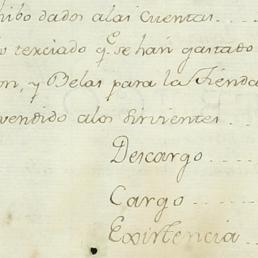 hibo dados alas Cuentas....
rexciado q.e se han gastado
on, y Belas para la Tienda
vendido alos sirvientes....
Descargo....
Cargo....
Existencia...